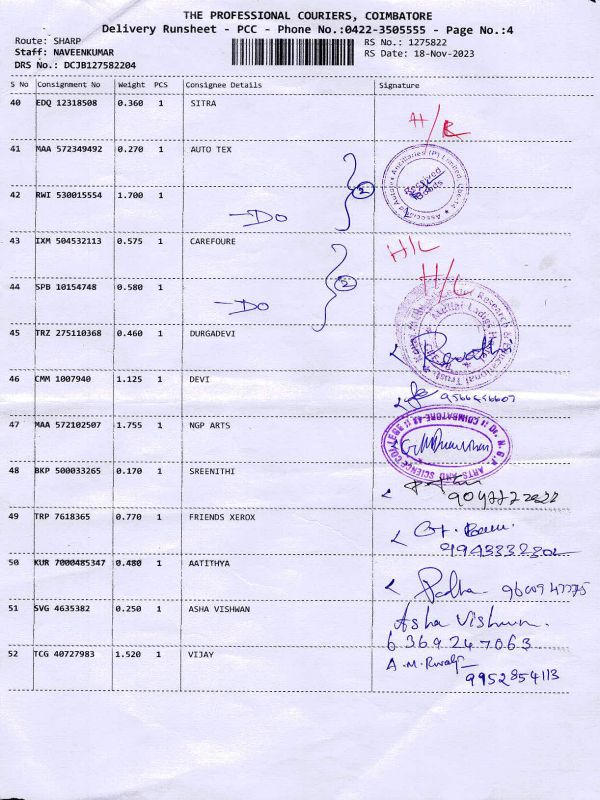 THE PROFESSIONAL COURIERS, COIMBATORE
Delivery Runsheet - PCC - Phone No.:0422-3505555 - Page No.:4
Route: SHARP
RS No.: 1275822
Staff: NAVEENKUMAR
RS Date: 18-Nov-2023
DRS No.: DCJB127582204
S No Consignment No Weight PCS Consignee Details Signature
40 EDQ 12318508 0.360 1 SITRA
41 MAA 572349492 0.270 1 AUTO TEX
2
42 RWI 530015554 1.700 1
Do
Received Goods
43 IXM 504532113 0.575 1 CAREFOURE H/L
2
H/L
44 SPB 10154748 0.580 1
Do
45 TRZ 275110368 0.460 1 DURGADEVI
46 CMM 1007940 1.125 1 DEVI
9566456607
47 MAA 572102507 1.755 1 NGP ARTS
Dr. N. G. P. ARTS AND SCIENCE COLLEGE COIMBATORE-48
48 BKP 500033265 0.170 1 SREENITHI
49 TRP 7618365 0.770 1 FRIENDS XEROX
50 KUR 7000485347 0.480 1 AATITHYA
Padha 9600947775
51 SVG 4635382 0.250 1 ASHA VISHWAN Asha Vishwan.
6369247063
52 TCG 40727983 1.520 1 VIJAY
9952854113